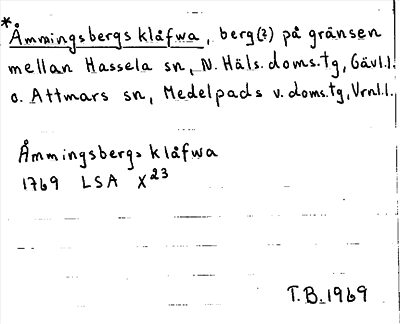 *Åmmingsbergs klåfwa, berg(?) på gränsen
mellan Hassela sn, N. Häls. doms.tg, Gävl.l.
o. Attmars sn, Medelpads v. doms.tg, Vrnl.l.
Åmmingsbergs klåfwa
1769 LSA X23
T.B. 1969